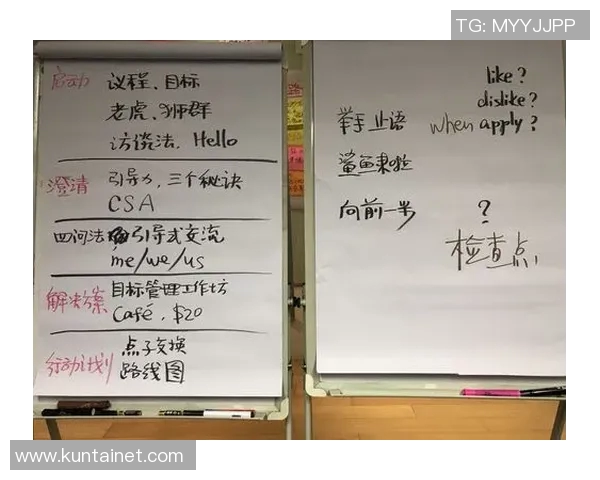 TG: MYYJJPP
启动 议程、目标
老虎、狮群
访谈法、Hello
澄清 引导力, 三个秘诀
CSA
四问法 引导式交流
me/we/us
解决方案 目标管理工作坊
Café, $20
行动计划 点子交换
路线图
like?
dislike?
举手止语 when apply?
鲨鱼来啦
向前一步 ?
检查点
www.kuntainet.com